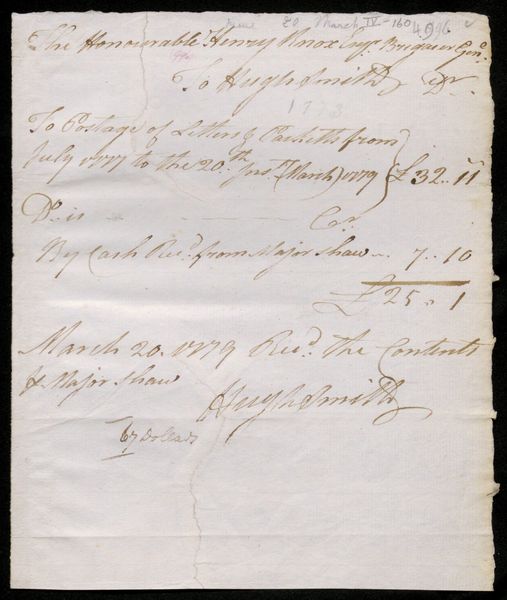 20 March IV-160 4096
The Honourable Henry Knox Esqr. Brigadier Genl.
To Hugh Smith Dr.
1779
To Postage of Letters & Packetts from
July 1777 to the 20th Inst. (March) 1779 £32..11
Dr. is Cr.
By Cash Recd. from Major Shaw .. 7..10
£25..1
March 20. 1779 Recd. the Contents
pr Major Shaw
Hugh Smith
67 Dollars